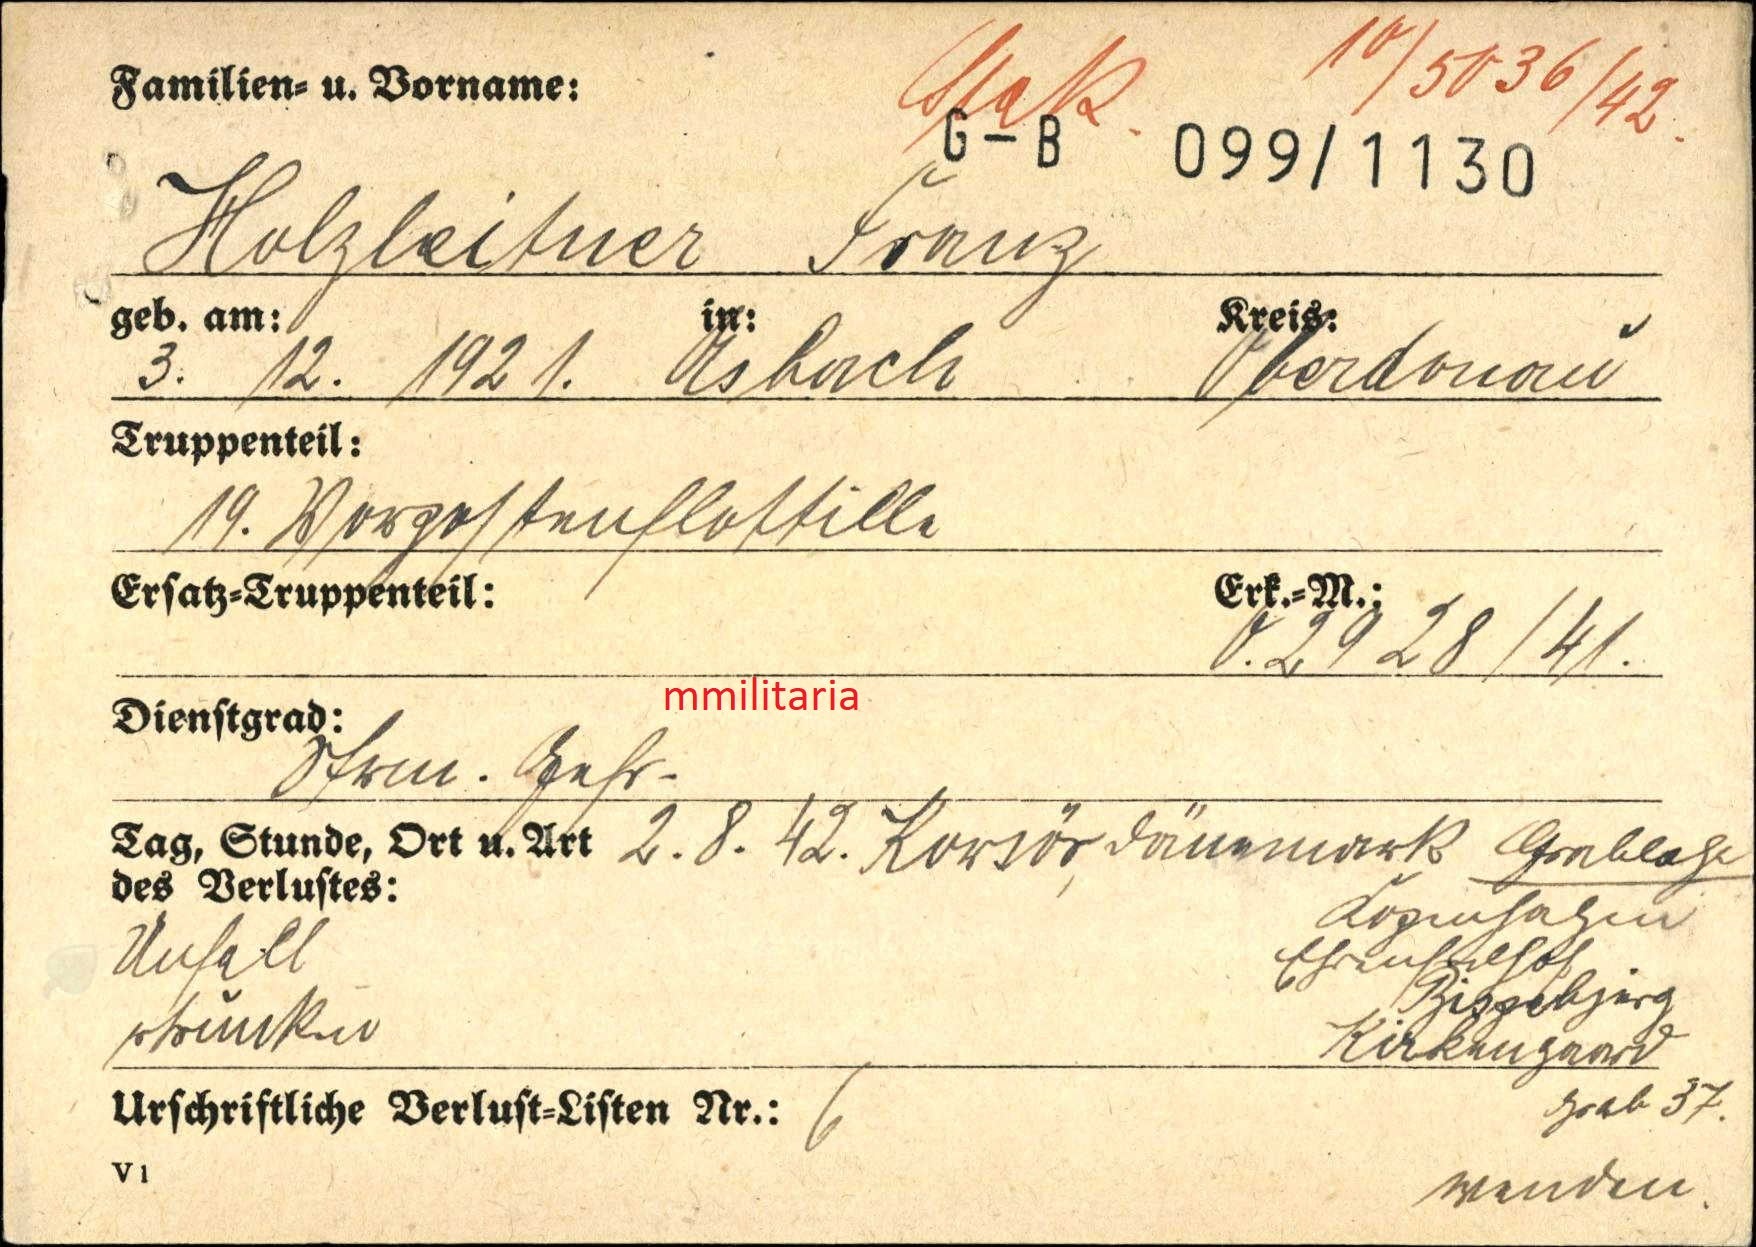 Familien- u. Vorname:
10/5036/42.
G-B 099/1130
Holzleitner Franz
geb. am: in: Kreis:
3. 12. 1921. Asbach Oberdonau
Truppenteil:
19. Vorpostenflottille
Ersatz-Truppenteil: Erk.-M.:
O. 2928/41.
mmilitaria
Dienstgrad:
Strm. Gefr.
Tag, Stunde, Ort u. Art 2. 8. 42. Korsör, Dänemark Grablage
des Verlustes: Kopenhagen
Unfall Ehrenfriedhof
Bispebjerg
ertrunken Kirkengaard
Urschriftliche Verlust-Listen Nr.: 6 Grab 37.
V 1
wenden.